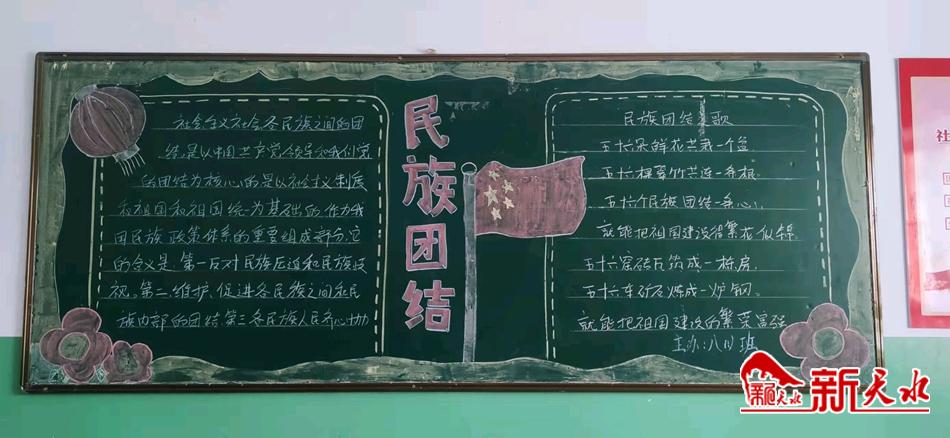 社会主义社会各民族之间的团
结,是以中国共产党领导和我们党
的团结为核心的是以社会主义制度
和祖国和祖国统一为基础的,作为我
国民族政策体系的重要组成部分,它
的含义是:第一反对民族压迫和民族歧
视。第二,维护、促进各民族之间和民
族内部的团结第三各民族人民齐心协力
民族团结
民族团结歌
五十六朵鲜花共栽一个盆
五十六棵翠竹共连一条根。
五十六个民族团结一条心,
就能把祖国建设得繁花似锦。
五十六窑砖瓦筑成一栋房,
五十六车矿石炼成一炉钢。
就能把祖国建设的繁荣富强
主办:八(1)班
社
新天水